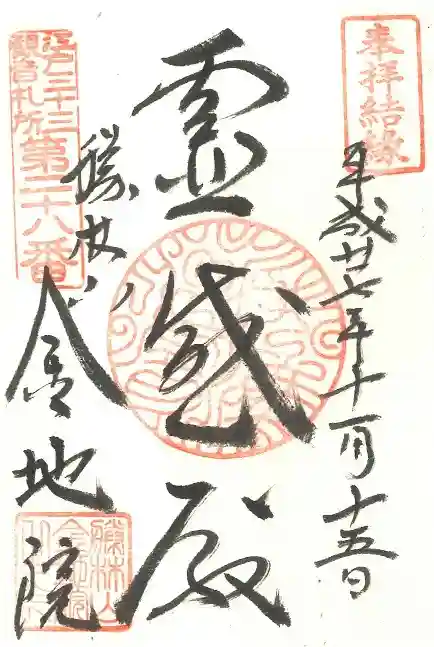 奉拝結縁
平成廿七年十一月十五日
靈感殿
江戸三十三
観音札所
第二十八番
勝林山
金地院